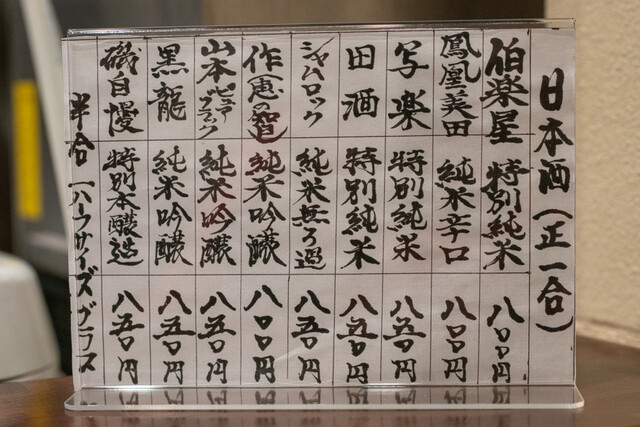 日本酒(正一合)
伯楽星 特別純米 八〇〇円
鳳凰美田 純米辛口 八〇〇円
写楽 特別純米 八五〇円
田酒 特別純米 八五〇円
シャムロック 純米無ろ過 八五〇円
作(恵の智) 純米吟醸 八〇〇円
山本ピュアブラック 純米吟醸 八五〇円
黒龍 純米吟醸 八五〇円
磯自慢 特別本醸造 八五〇円
半合 ハーフサイズグラス